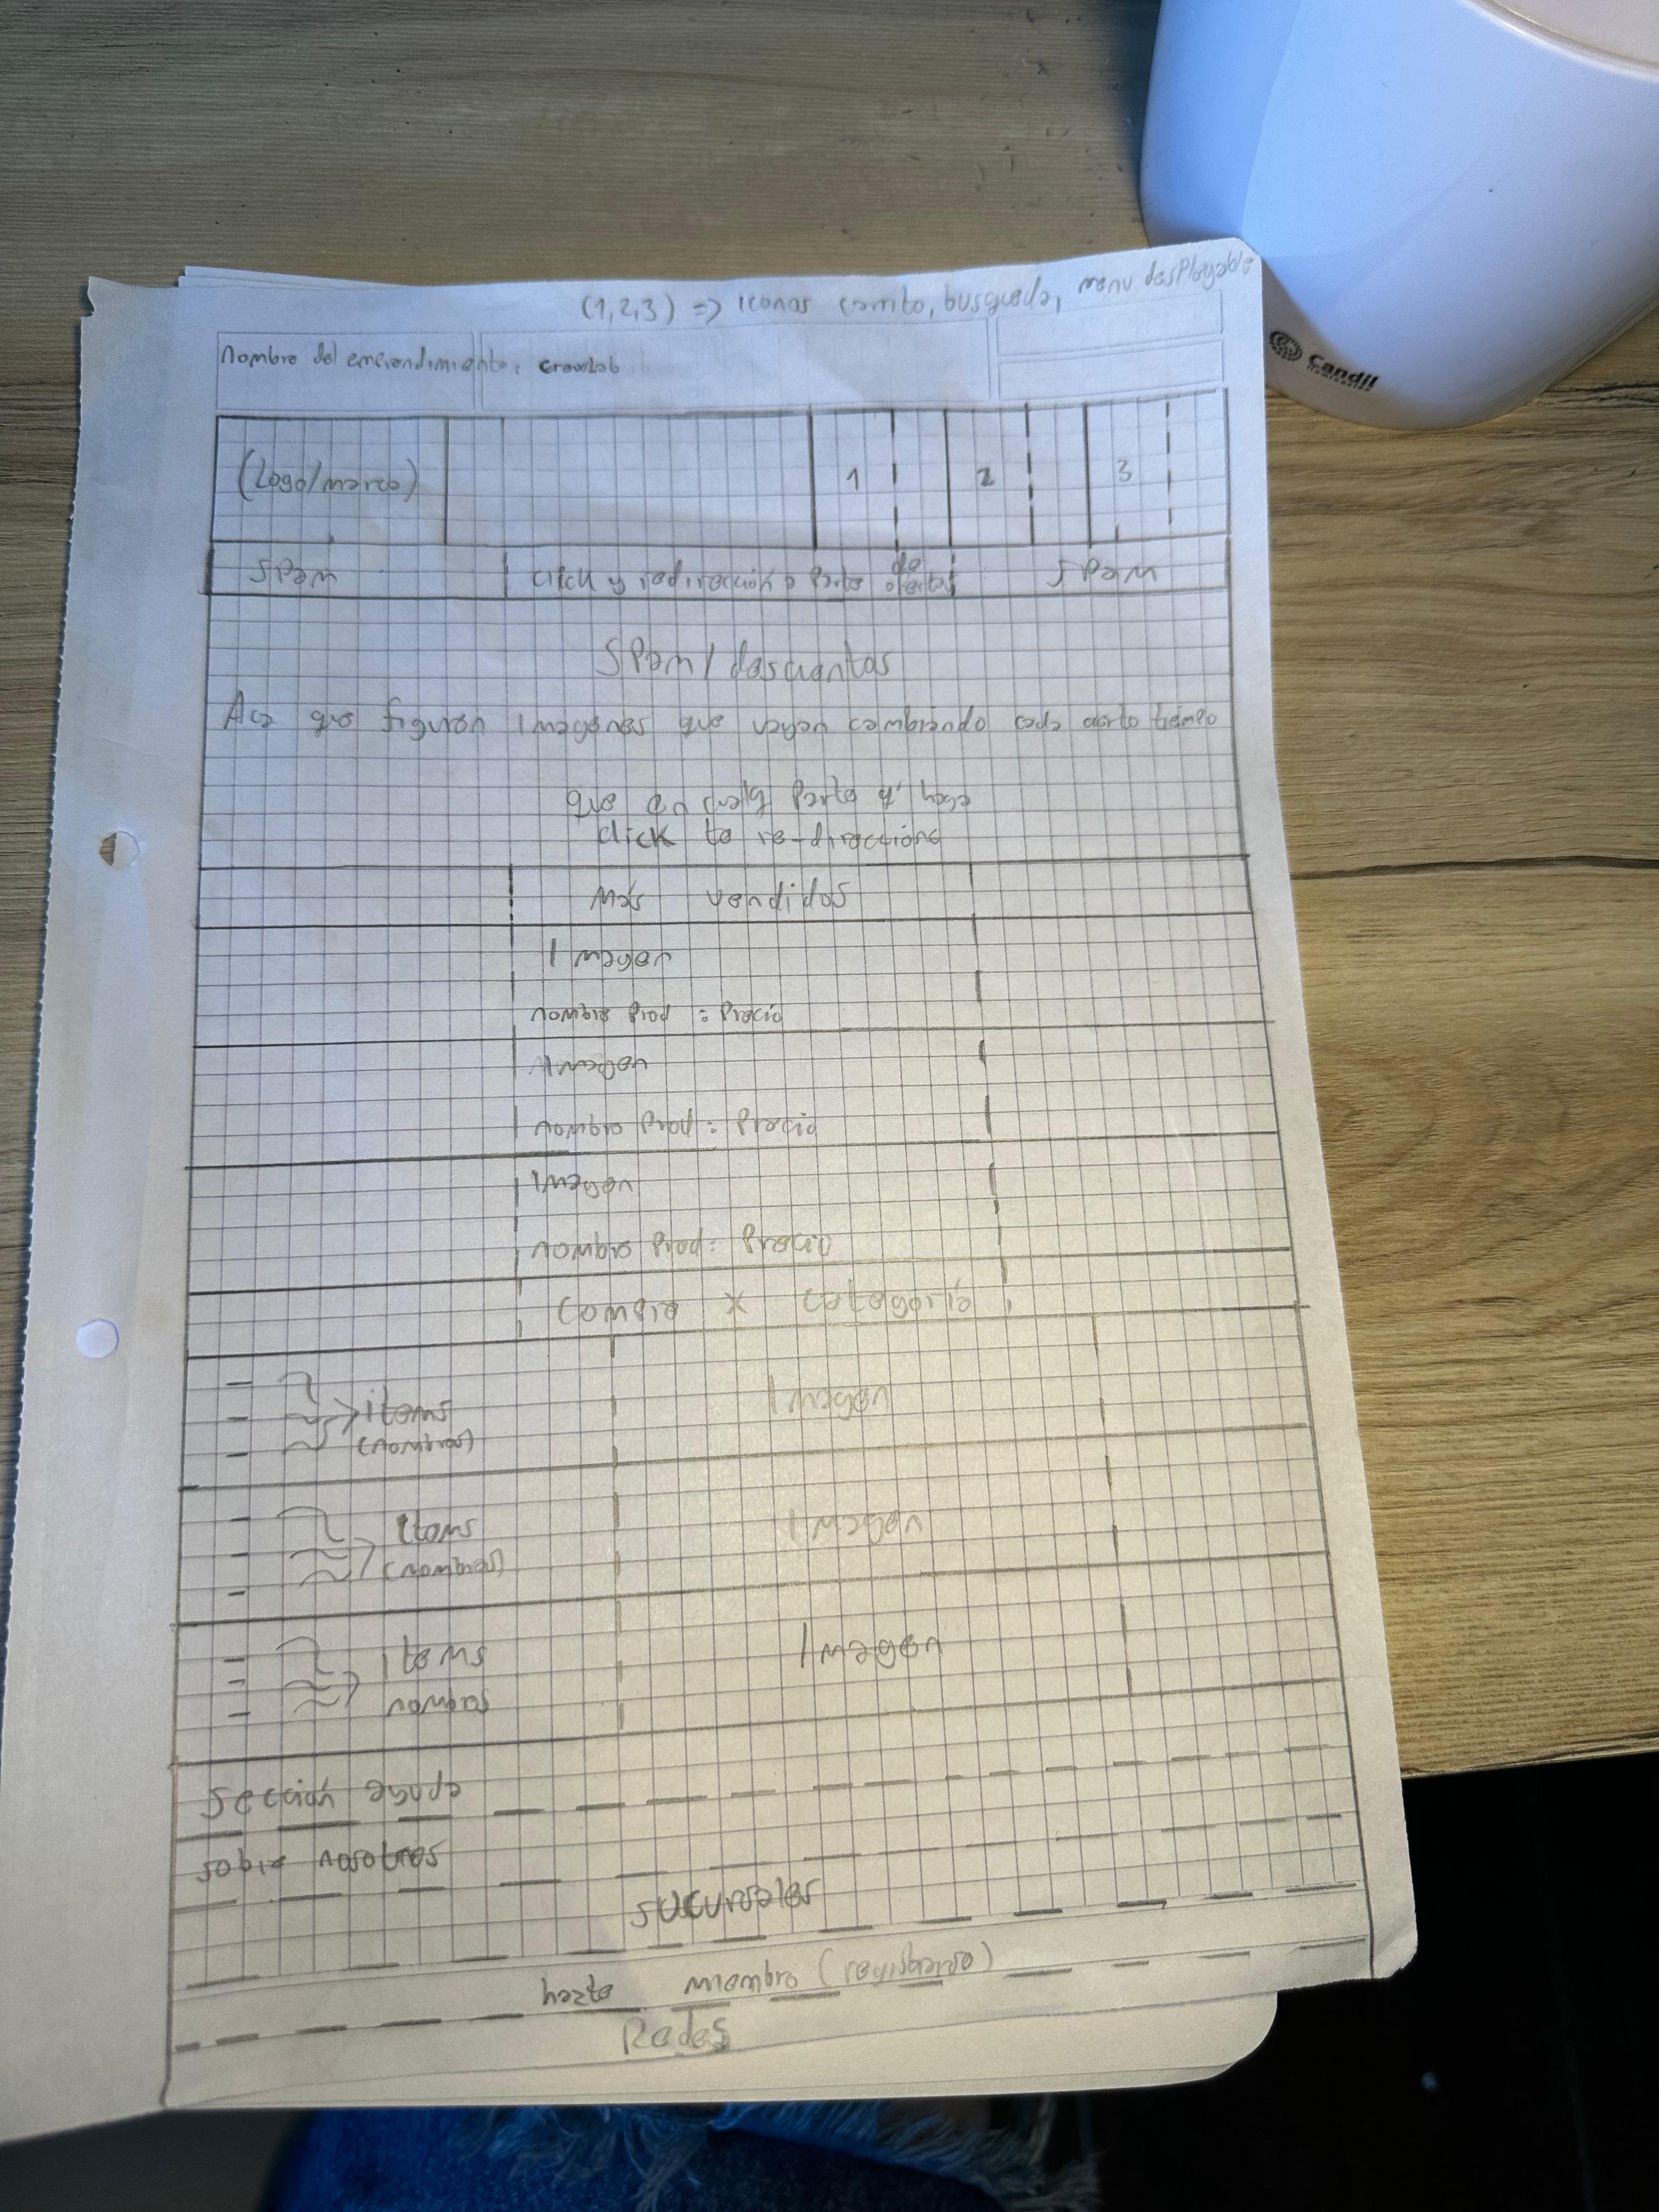 (1,2,3) => Iconos carrito, busqueda, menu desplegable
Nombre del emprendimiento: crowlab
(Logo/marca) 1 2 3
SPam click y redirección a parte de ofertas SPam
SPam/descuentos
Aca que figuren imagenes que vayan cambiando cada cierto tiempo
que en cualq parte q' haga
click te re-direccione
Más vendidos
Imagen
nombre Prod : Precio
Imagen
nombre Prod : Precio
Imagen
nombre Prod : Precio
Compra x categoría
items Imagen
(nombres)
items Imagen
(nombres)
items Imagen
nombres
Sección ayuda
sobre nosotros
sucursales
hazte miembro (registrarse)
Redes
Candil